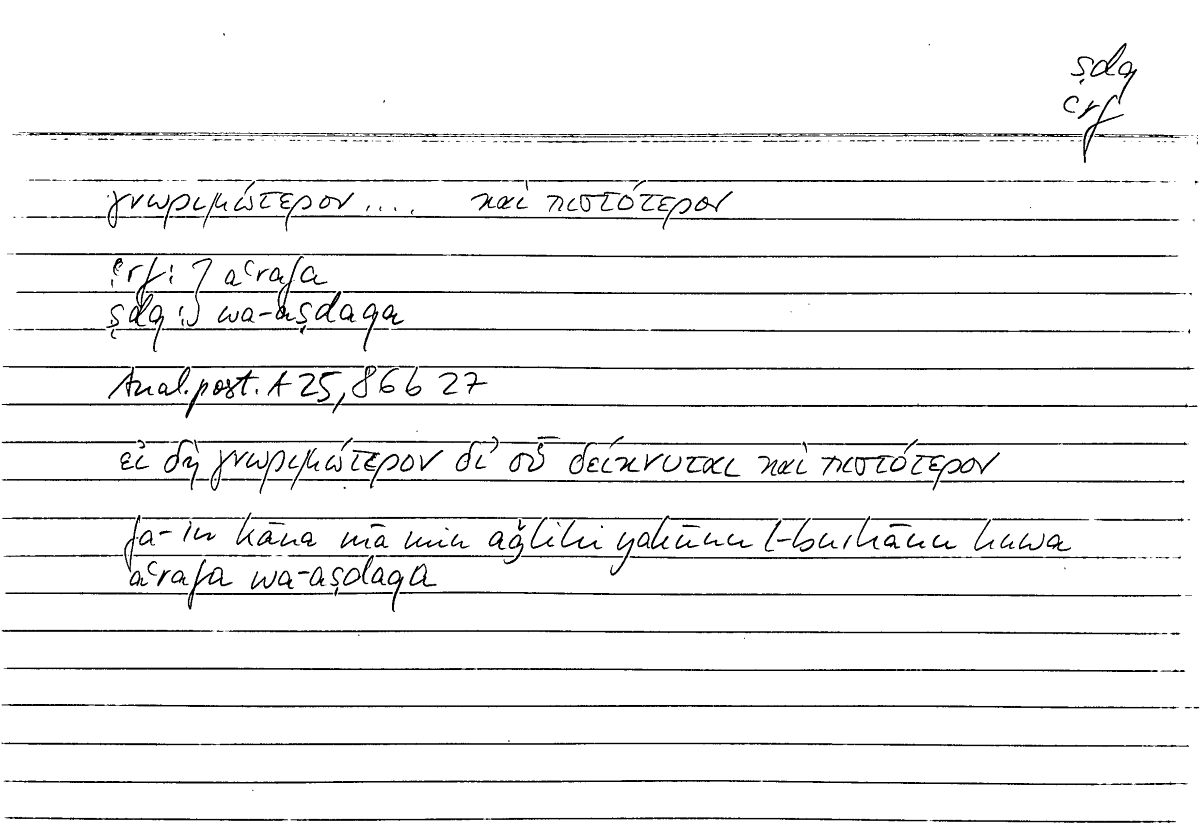 ṣdq
ʿrf
γνωριμώτερον .... καὶ πιστότερον
ʿrf: } aʿrafa
ṣdq: } wa-aṣdaqa
Anal. post. A 25, 86 b 27
εἰ δὴ γνωριμώτερον δι' οὗ δείκνυται καὶ πιστότερον
fa-in kāna mā min ağlihi yakūnu l-burhānu huwa
aʿrafa wa-aṣdaqa